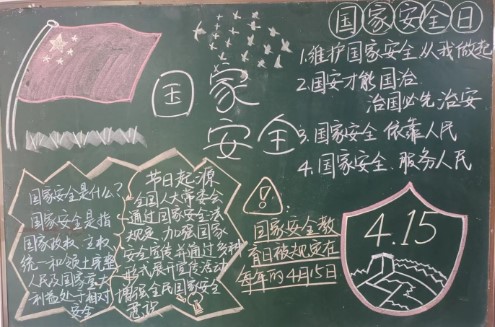 国家安全
国家安全日
1.维护国家安全从我做起
2.国安才能国治
治国必先治安
3.国家安全 依靠人民
4.国家安全.服务人民
国家安全是什么?
国家安全是指
国家政权、主权
统一和领土完整
人民及国家重大
利益处于相对
安全
节日起源
全国人大常委会
通过国家安全法
规定,加强国家
安全宣传并通过多种
形式展开宣传活动
增强全民国家安全
意识
国家安全教
育日被规定在
每年的4月15日
4.15